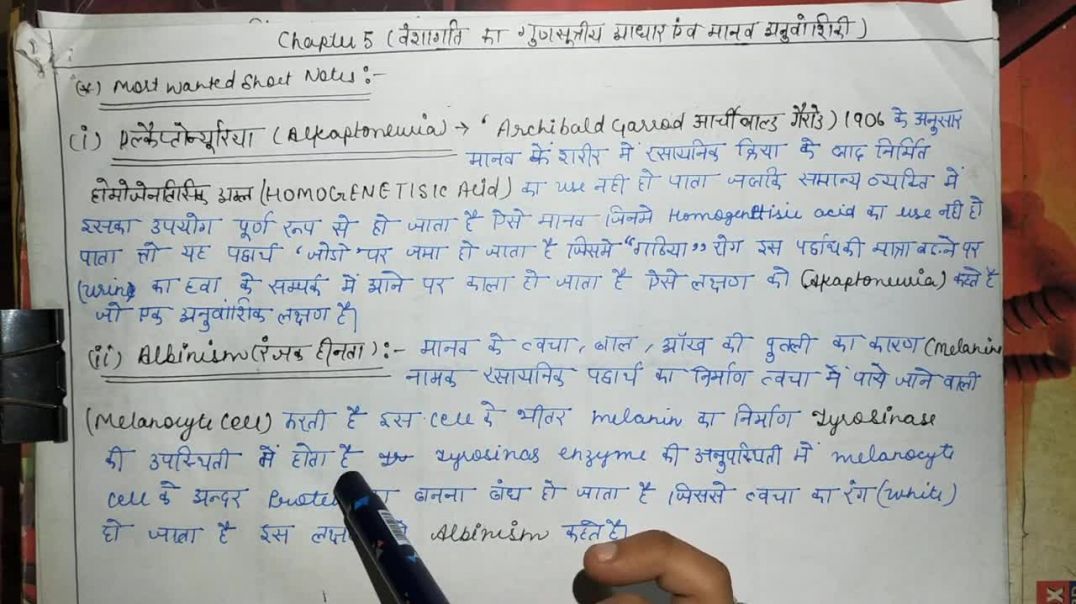 Chapter 5 (वंशागति का गुणसूत्रीय आधार एंव मानव अनुवांशिकी)
(*) Most wanted Short Notes :-
(i) एल्कैप्टोन्यूरिया (Alkaptoneuria) → 'Archibald Garrod आर्चीबाल्ड गैरोड) 1906 के अनुसार
मानव के शरीर में रसायनिक क्रिया के बाद निर्मित
होमोजेनटिसिक अम्ल (HOMOGENETISIC Acid) का use नही हो पाता जबकि समान्य व्यक्ति में
इसका उपयोग पूर्ण रूप से हो जाता है ऐसे मानव जिनमे Homogenttisic acid का use नही हो
पाता तो यह पदार्थ 'जोडो' पर जमा हो जाता है जिसमे "गाठिया" रोग इस पदार्थ की मात्रा बढने पर
(urine का हवा के सम्पर्क में आने पर काला हो जाता है ऐसे लक्षण को (Alkaptoneuria) कहते है
जो एक अनुवांशिक लक्षण है।
(ii) Albinism (रंजक हीनता) :- मानव के त्वचा, बाल, आँख की पुतली का कारण (Melanin
नामक रसायनिक पदार्थ का निर्माण त्वचा में पाये जाने वाली
(Melanocyte Cell) करती है इस cell के भीतर melanin का निर्माण Tyrosinase
की उपस्थिती में होता है Tyrosinas enzyme की अनुपस्थिती में melanocyte
cell के अन्दर बनना बंध हो जाता है जिससे त्वचा का रंग (white)
हो जाता है इस Albinism कहते है।